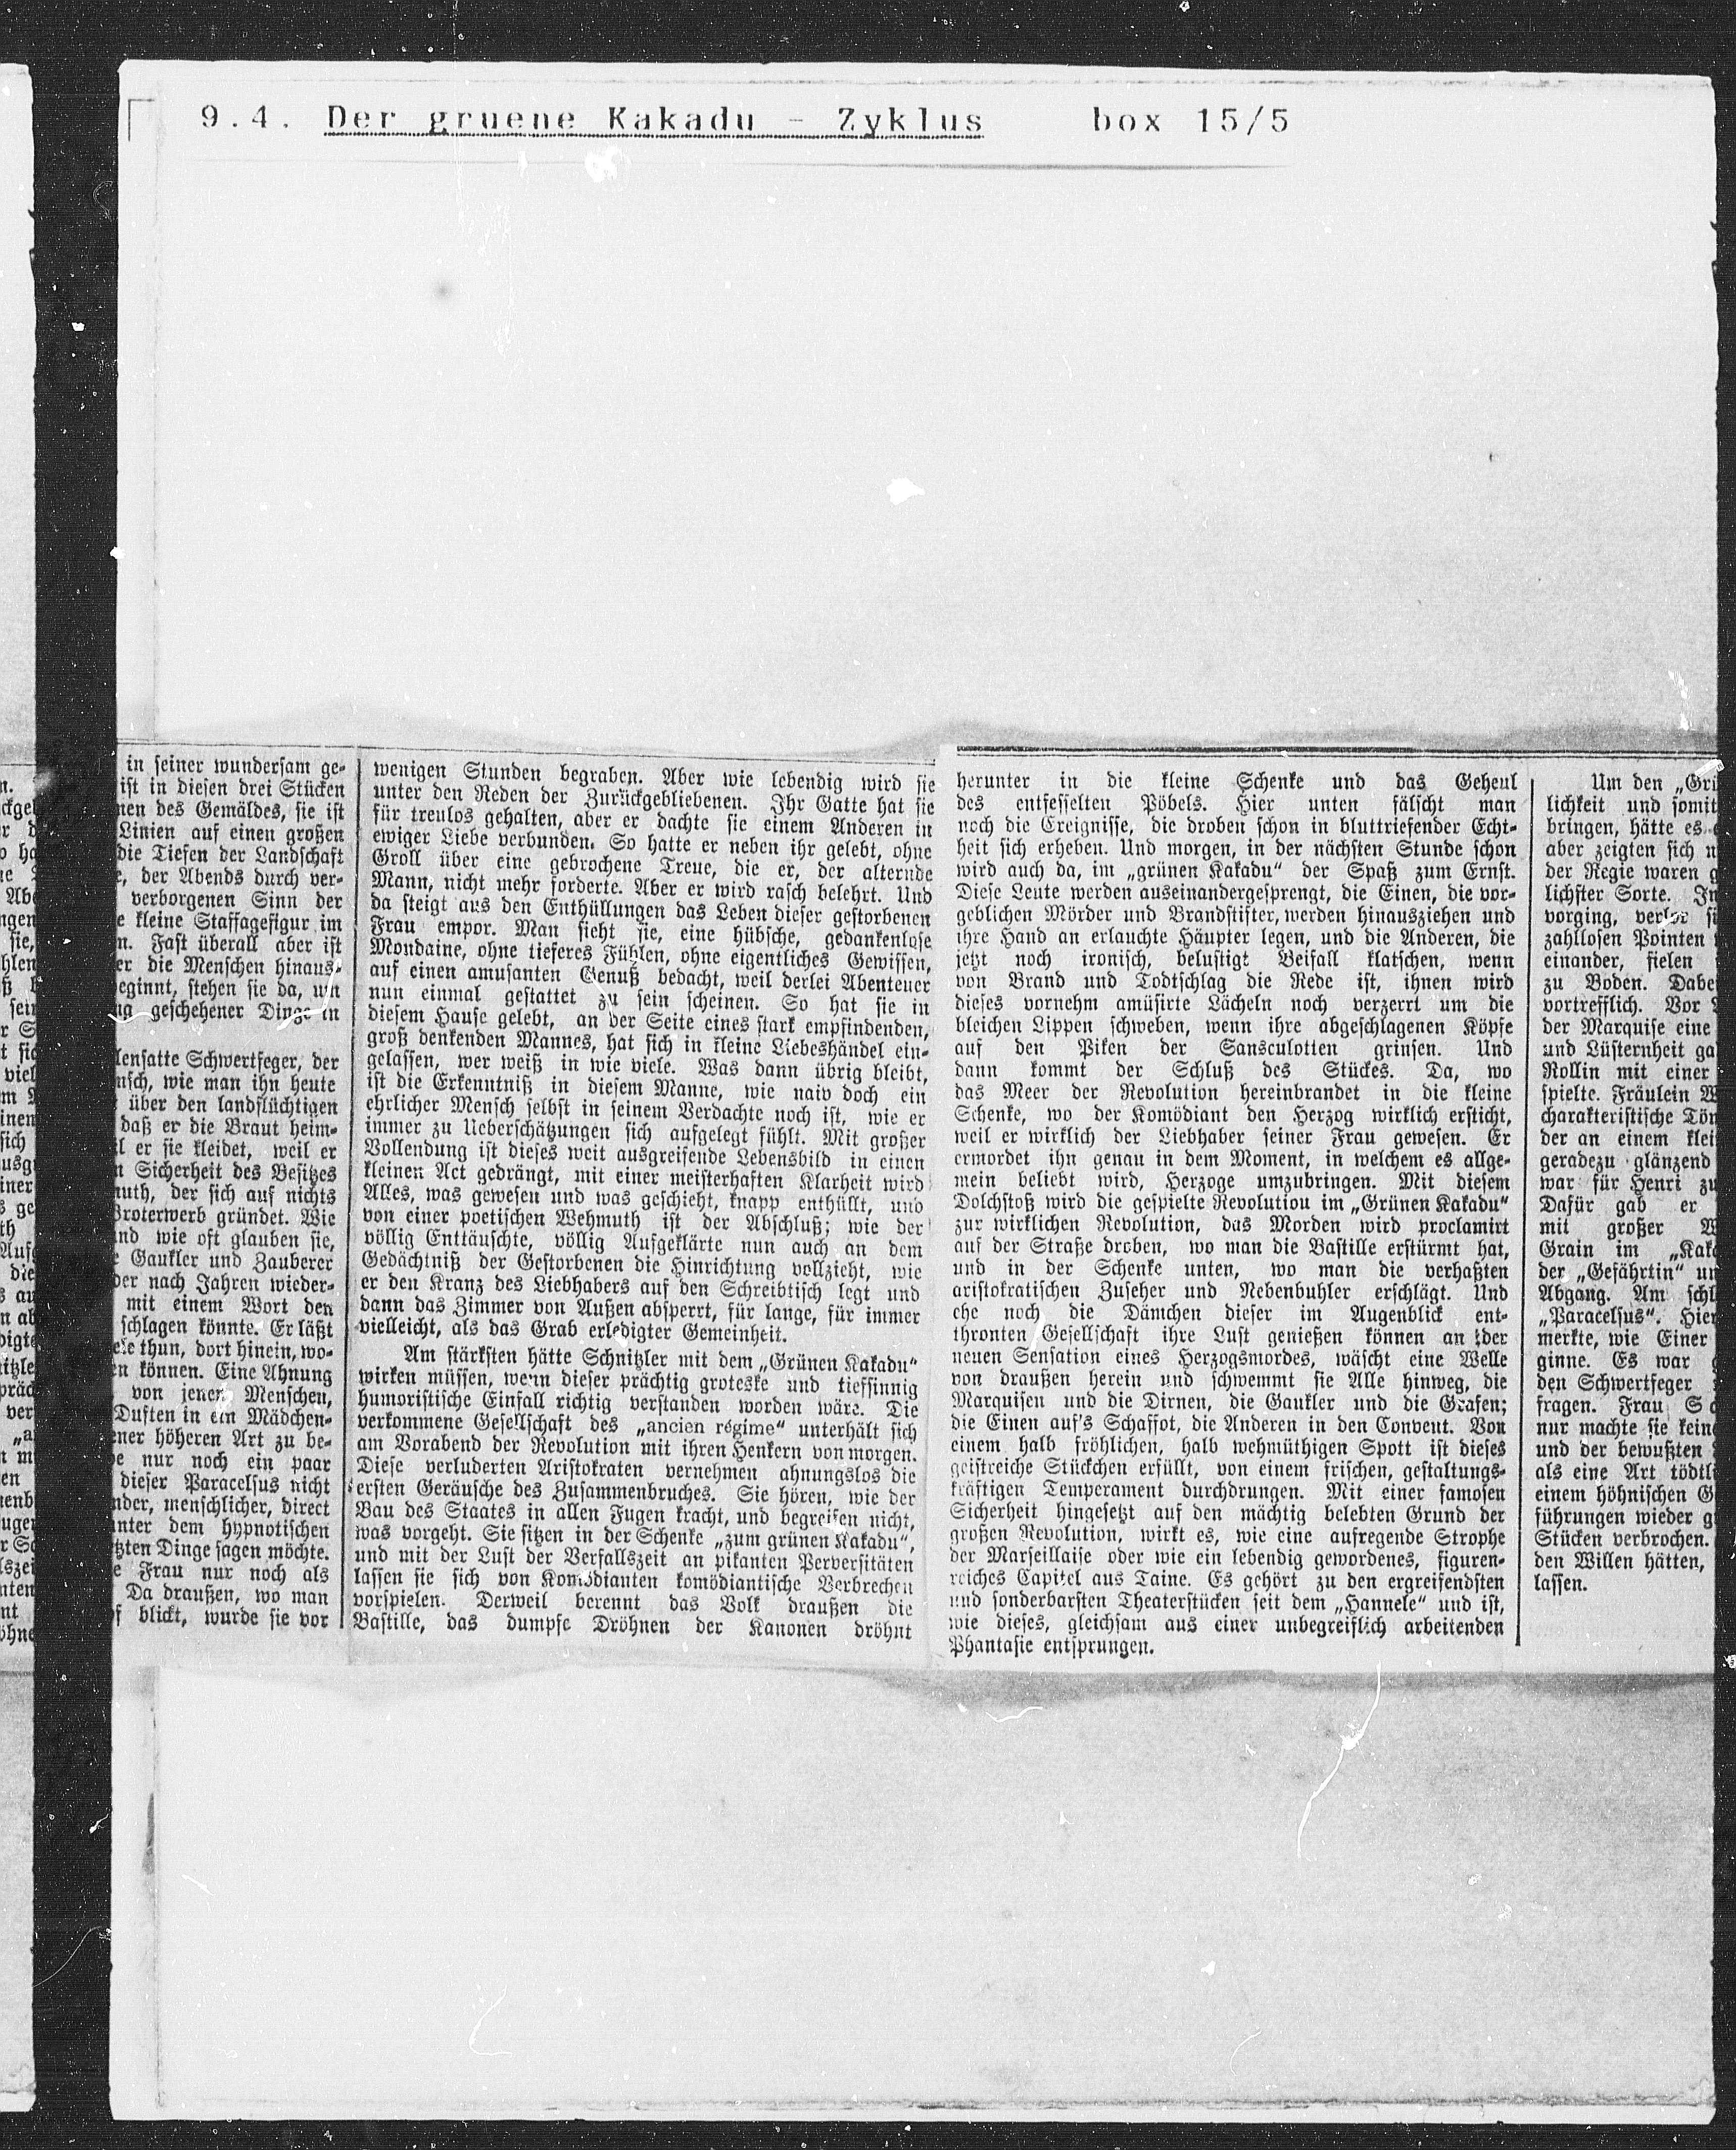 9.4. Der gruene Kakadu - Zyklus box 15/5
in seiner wundersam ge-
ist in diesen drei Stücken
des Gemäldes, sie ist
Linien auf einen großen
die Tiefen der Landschaft
der Abends durch ver-
verborgenen Sinn der
kleine Staffagefigur im
Fast überall aber ist
die Menschen hinaus-
stehen sie da, um
geschehener Dinge in
Schwertfeger, der
wie man ihn heute
über den landflüchtigen
daß er die Braut heim-
er sie kleidet, weil er
Sicherheit des Besitzes
der sich auf nichts
Broterwerb gründet. Wie
und wie oft glauben sie,
Gaukler und Zauberer
der nach Jahren wieder-
mit einem Wort den
schlagen könnte. Er läßt
thun, dort hinein, wo-
können. Eine Ahnung
von jenen Menschen,
Duften in ein Mädchen-
höheren Art zu be-
nur noch ein paar
dieser Paracelsus nicht
menschlicher, direct
unter dem hypnotischen
Dinge sagen möchte.
Frau nur noch als
Da draußen, wo man
blickt, wurde sie vor
wenigen Stunden begraben. Aber wie lebendig wird sie
unter den Reden der Zurückgebliebenen. Ihr Gatte hat sie
für treulos gehalten, aber er dachte sie einem Anderen in
ewiger Liebe verbunden. So hatte er neben ihr gelebt, ohne
Groll über eine gebrochene Treue, die er, der alternde
Mann, nicht mehr forderte. Aber er wird rasch belehrt. Und
da steigt aus den Enthüllungen das Leben dieser gestorbenen
Frau empor. Man sieht sie, eine hübsche, gedankenlose
Mondaine, ohne tieferes Fühlen, ohne eigentliches Gewissen,
auf einen amusanten Genuß bedacht, weil derlei Abenteuer
nun einmal gestattet zu sein scheinen. So hat sie in
diesem Hause gelebt, an der Seite eines stark empfindenden,
groß denkenden Mannes, hat sich in kleine Liebeshändel ein-
gelassen, wer weiß in wie viele. Was dann übrig bleibt,
ist die Erkenntniß in diesem Manne, wie naiv doch ein
ehrlicher Mensch selbst in seinem Verdachte noch ist, wie er
immer zu Ueberschätzungen sich aufgelegt fühlt. Mit großer
Vollendung ist dieses weit ausgreifende Lebensbild in einen
kleinen Act gedrängt, mit einer meisterhaften Klarheit wird
Alles, was gewesen und was geschieht, knapp enthüllt, und
von einer poetischen Wehmuth ist der Abschluß; wie der
völlig Enttäuschte, völlig Aufgeklärte nun auch an dem
Gedächtniß der Gestorbenen die Hinrichtung vollzieht, wie
er den Kranz des Liebhabers auf den Schreibtisch legt und
dann das Zimmer von Außen absperrt, für lange, für immer
vielleicht, als das Grab erledigter Gemeinheit.
Am stärksten hätte Schnitzler mit dem „Grünen Kakadu“
wirken müssen, wenn dieser prächtig groteske und tiefsinnig
humoristische Einfall richtig verstanden worden wäre. Die
verkommene Gesellschaft des „ancien régime“ unterhält sich
am Vorabend der Revolution mit ihren Henkern von morgen.
Diese verluderten Aristokraten vernehmen ahnungslos die
ersten Geräusche des Zusammenbruches. Sie hören, wie der
Bau des Staates in allen Fugen kracht, und begreifen nicht,
was vorgeht. Sie sitzen in der Schenke „zum grünen Kakadu“,
und mit der Lust der Verfallszeit an pikanten Perversitäten
lassen sie sich von Komödianten komödiantische Verbrechen
vorspielen. Derweil berennt das Volk draußen die
Bastille, das dumpfe Dröhnen der Kanonen dröhnt
herunter in die kleine Schenke und das Geheul
des entfesselten Pöbels. Hier unten fälscht man
noch die Ereignisse, die droben schon in bluttriefender Echt-
heit sich erheben. Und morgen, in der nächsten Stunde schon
wird auch da, im „grünen Kakadu“ der Spaß zum Ernst.
Diese Leute werden auseinandergesprengt, die Einen, die vor-
geblichen Mörder und Brandstifter, werden hinausziehen und
ihre Hand an erlauchte Häupter legen, und die Anderen, die
jetzt noch ironisch, belustigt Beifall klatschen, wenn
von Brand und Todtschlag die Rede ist, ihnen wird
dieses vornehm amüsirte Lächeln noch verzerrt um die
bleichen Lippen schweben, wenn ihre abgeschlagenen Köpfe
auf den Piken der Sansculotten grinsen. Und
dann kommt der Schluß des Stückes. Da, wo
das Meer der Revolution hereinbrandet in die kleine
Schenke, wo der Komödiant den Herzog wirklich ersticht,
weil er wirklich der Liebhaber seiner Frau gewesen. Er
ermordet ihn genau in dem Moment, in welchem es allge-
mein beliebt wird, Herzoge umzubringen. Mit diesem
Dolchstoß wird die gespielte Revolution im „Grünen Kakadu“
zur wirklichen Revolution, das Morden wird proclamirt
auf der Straße droben, wo man die Bastille erstürmt hat,
und in der Schenke unten, wo man die verhaßten
aristokratischen Zuseher und Nebenbuhler erschlägt. Und
ehe noch die Dämchen dieser im Augenblick ent-
thronten Gesellschaft ihre Lust genießen können an der
neuen Sensation eines Herzogsmordes, wäscht eine Welle
von draußen herein und schwemmt sie Alle hinweg, die
Marquisen und die Dirnen, die Gaukler und die Grafen;
die Einen auf's Schaffot, die Anderen in den Convent. Von
einem halb fröhlichen, halb wehmüthigen Spott ist dieses
geistreiche Stückchen erfüllt, von einem frischen, gestaltungs-
kräftigen Temperament durchdrungen. Mit einer famosen
Sicherheit hingesetzt auf den mächtig belebten Grund der
großen Revolution, wirkt es, wie eine aufregende Strophe
der Marseillaise oder wie ein lebendig gewordenes, figuren-
reiches Capitel aus Taine. Es gehört zu den ergreifendsten
und sonderbarsten Theaterstücken seit dem „Hannele“ und ist,
wie dieses, gleichsam aus einer unbegreiflich arbeitenden
Phantasie entsprungen.
Um den „Grü
lichkeit und somit
bringen, hätte es
aber zeigten sich
der Regie waren
lichster Sorte.
vorging, verlor
zahllosen Pointen
einander, fielen
zu Boden. Dabei
vortrefflich. Vor
der Marquise eine
und Lüsternheit
Rollin mit einer
spielte. Fräulein
charakteristische
der an einem
geradezu glänzend
war für Henri
Dafür gab er
mit großer
Grain im
der „Gefährtin“
Abgang. Am
„Paracelsus“.
merkte, wie Einer
ginne. Es war
den Schwertfeger
fragen. Frau
nur machte sie
und der bewußten
als eine Art
einem höhnischen
führungen wieder
Stücken verbrochen.
den Willen hätten,
lassen.